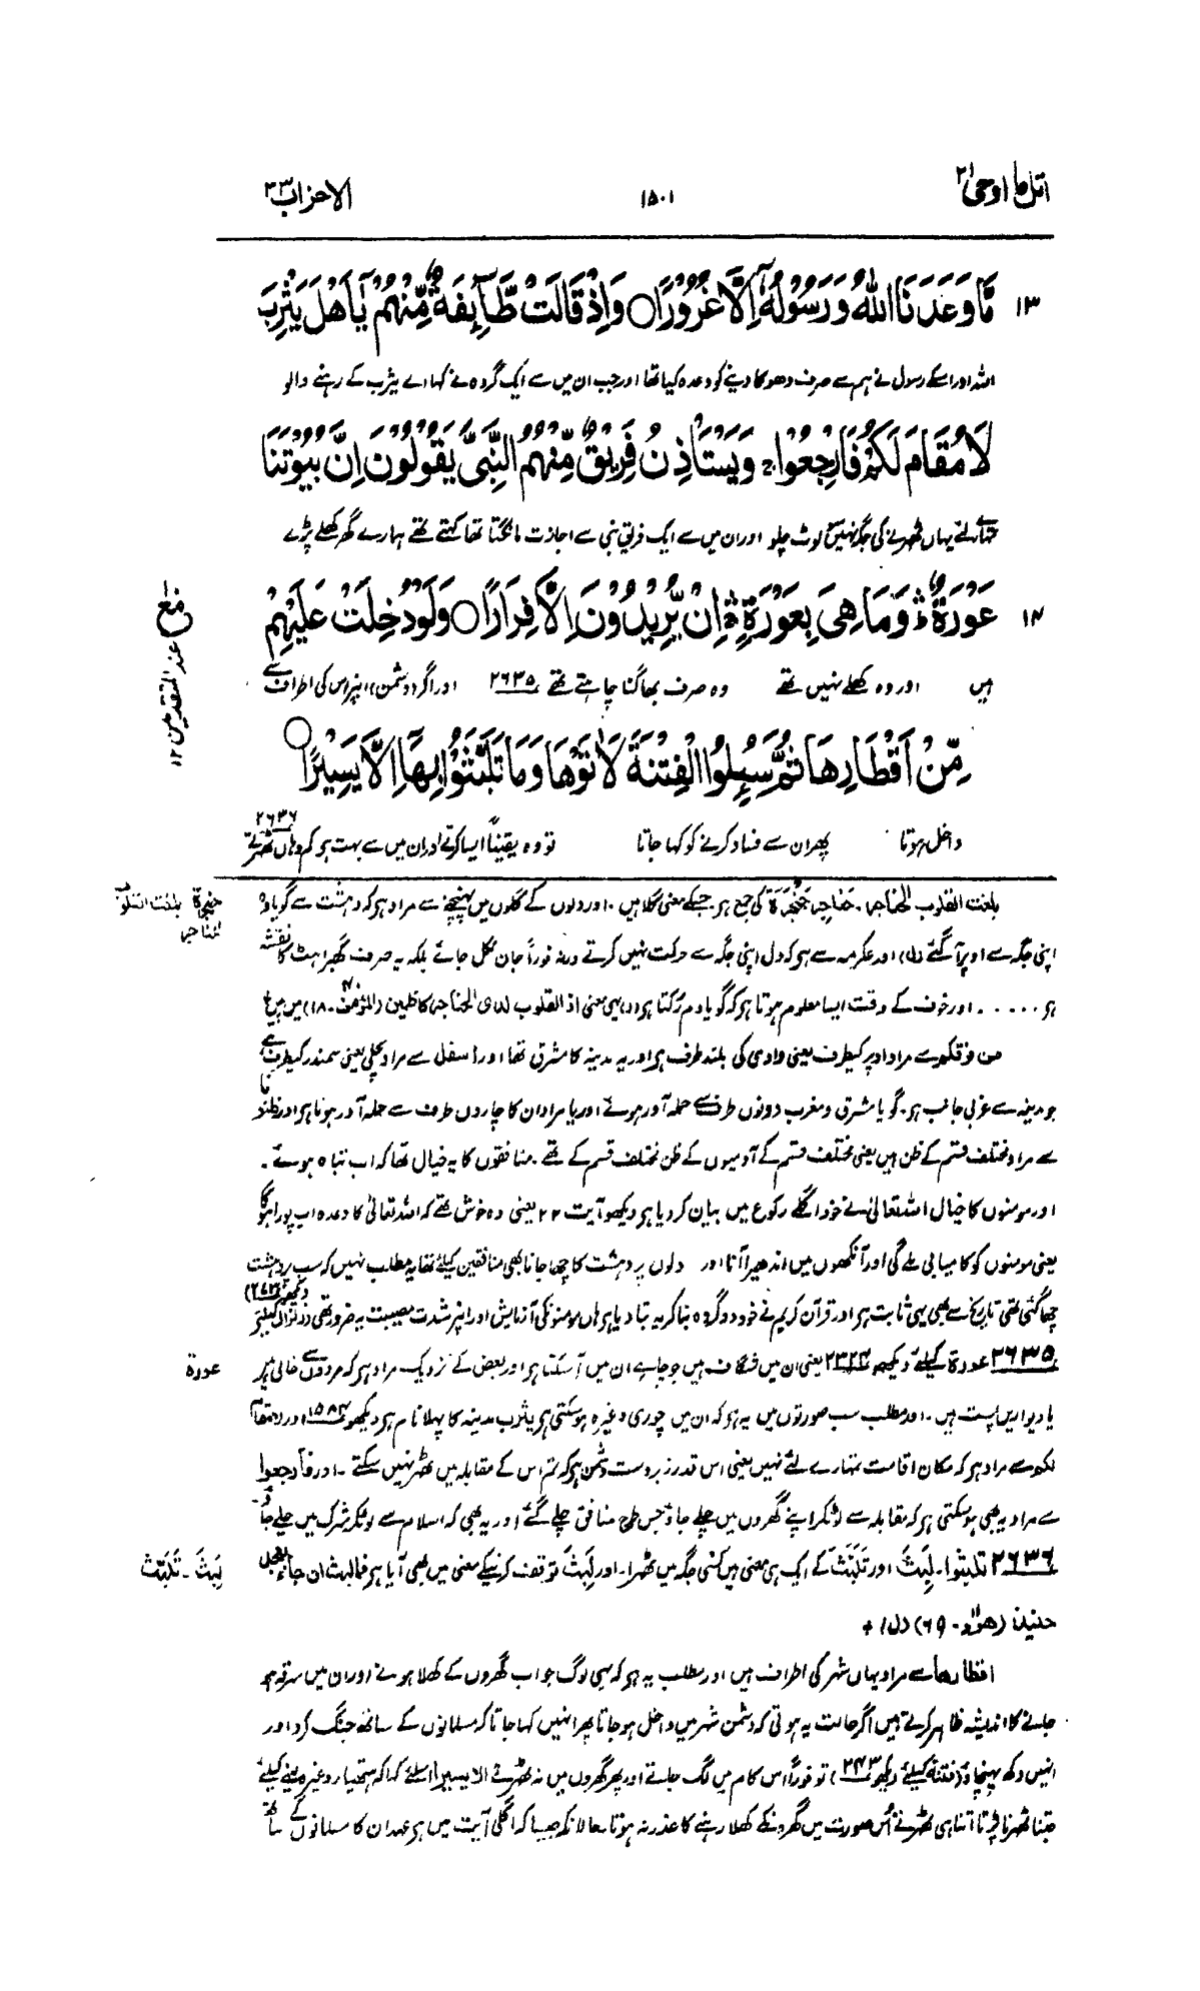 اتل ما اوحی ۲۱
۱۵۰۱
الاحزاب ۳۳
۱۳ مَّا وَعَدَنَا اللّٰهُ وَرَسُوْلُهٗۤ اِلَّا غُرُوْرًا○ وَاِذْ قَالَتْ طَّآئِفَةٌ مِّنْهُمْ یٰۤاَهْلَ یَثْرِبَ
اللہ اور اسکے رسول نے ہم سے صرف دھوکا دینے کو وعدہ کیا تھا اور جب ان میں سے ایک گروہ نے کہا اے یثرب کے رہنے والو
لَا مُقَامَ لَكُمْ فَارْجِعُوْا ۚ وَیَسْتَاْذِنُ فَرِیْقٌ مِّنْهُمُ النَّبِیَّ یَقُوْلُوْنَ اِنَّ بُیُوْتَنَا
تمہارے لئے یہاں ٹھہرنے کی جگہ نہیں سو لوٹ چلو اور ان میں سے ایک فریق نبی سے اجازت مانگتا تھا کہتے تھے ہمارے گھر کھلے پڑے
۱۴ عَوْرَةٌ ؕ وَمَا هِیَ بِعَوْرَةٍ ۚۛ اِنْ یُّرِیْدُوْنَ اِلَّا فِرَارًا○ وَلَوْ دُخِلَتْ عَلَیْهِمْ
ہیں اور وہ کھلے نہیں تھے وہ صرف بھاگنا چاہتے تھے ۲۶۳۵ اور اگر (دشمن) انپر اس کی اطراف سے
مع
عند المتقدمین ۱۲
مِّنْ اَقْطَارِهَا ثُمَّ سُىِٕلُوا الْفِتْنَةَ لَاٰتَوْهَا وَمَا تَلَبَّثُوْا بِهَاۤ اِلَّا یَسِیْرًا○
داخل ہوتا پھر ان سے فساد کرنے کو کہا جاتا تو وہ یقیناً ایسا کرتے اور ان میں سے بہت ہی کم وہاں ٹھہرتے ۲۶۳۶
بلغت القلوب الحناجر۔ حناجر حَنْجَرَة کی جمع ہر جسکے معنی گلا ہیں۔ اور دلوں کے گلوں میں پہنچنے سے مراد ہر کہ دہشت سے گویا وہ
حنجرة بلغت القلوب
الحناجر
اپنی جگہ سے اوپر آ گئے (ل) اور عکرمہ سے ہر کہ دل اپنی جگہ سے حرکت نہیں کرتے ورنہ فوراً جان نکل جائے بلکہ یہ صرف گھبراہٹ کا نقشہ
ہر ..... اور خوف کے وقت ایسا معلوم ہوتا ہر کہ گویا دم رکتا ہر (د) یہی معنی اذ القلوب لدی الحناجر کاظمین (المؤمن ۴۰۔۱۸) میں ہیں
من فوقکم سے مراد اوپر کیطرف یعنی وادی کی بلند طرف ہر اور یہ مدینہ کا مشرق تھا اور اسفل سے مراد نچلی یعنی سمندر کیطرف ہے
جو مدینہ سے غربی جانب ہر۔ گویا مشرق و مغرب دونوں طرف سے حملہ آور ہوئے اور یا مراد ان کا چاروں طرف سے حملہ آور ہونا ہر اور ظنونا
سے مراد مختلف قسم کے ظن ہیں یعنی مختلف قسم کے آدمیوں کے ظن مختلف قسم کے تھے۔ منافقوں کا یہ خیال تھا کہ اب تباہ ہوئے۔
اور مومنوں کا خیال اللہ تعالیٰ نے خود اگلے رکوع میں بیان کر دیا ہر دیکھو آیت ۲۲ یعنی وہ خوش تھے کہ اللہ تعالیٰ کا وعدہ اب پورا ہوگا
یعنی مومنوں کو کامیابی ملے گی اور آنکھوں میں اندھیرا آنا اور دلوں پر دہشت کا چھا جانا بھی منافقین کیلئے تھا یہ مطلب نہیں کہ سب پر دہشت
چھا گئی تھی تاریخ سے بھی یہی ثابت ہر اور قرآن کریم نے خود دو گروہ بنا کر یہ بتا دیا ہر ہاں مومنوں کی آزمایش اور انپر شدت مصیبت یہ ضرور تھی زلزال کیلئے
۲۶۳۵ عورة کیلئے دیکھو ۲۳۲۴ یعنی ان میں شگاف ہیں جو چاہے ان میں آ سکتا ہر اور بعض کے نزدیک مراد ہر کہ مردوں سے خالی ہیں
عورة
یا دیواریں پست ہیں۔ اور مطلب سب صورتوں میں یہ ہر کہ ان میں چوری وغیرہ ہو سکتی ہر یثرب مدینہ کا پہلا نام ہر دیکھو ۱۵۸۴ اور لا مقام
لکم سے مراد ہر کہ مکان اقامت تمہارے لئے نہیں یعنی اس قدر زبردست دشمن ہر کہ تم اس کے مقابلہ میں ٹھہر نہیں سکتے۔ اور فارجعوا
سے مراد یہ بھی ہو سکتی ہر کہ مقابلہ سے لوٹکر اپنے گھروں میں چلے جاؤ جس طرح منافق چلے گئے اور یہ بھی کہ اسلام سے لوٹکر شرک میں چلے جاؤ۔
۲۶۳۶ تلبثوا۔ لَبِثَ اور تَلَبَّثَ کے ایک ہی معنی ہیں کسی جگہ میں ٹھہرا۔ اور لَبِثَ توقف کرنیکے معنی میں بھی آیا ہر فما لبث ان جاء بعجل
لَبِثَ۔ تَلَبَّثَ
حنیذ (ھود۔ ۶۹) (ل) +
اقطارھا سے مراد یہاں شہر کی اطراف ہیں اور مطلب یہ ہر کہ یہی لوگ جو اب گھروں کے کھلا ہونے اور ان میں سرقہ ہو
جانے کا اندیشہ ظاہر کرتے ہیں اگر حالت یہ ہوتی کہ دشمن شہر میں داخل ہو جاتا پھر انہیں کہا جاتا کہ مسلمانوں کے ساتھ جنگ کرو اور
انہیں دکھ پہنچاؤ (فتنة کیلئے دیکھو ۲۴۳) تو فوراً اس کام میں لگ جاتے اور پھر گھروں میں نہ ٹھہرتے الا یسیرا اسلئے کہا کہ ہتھیار وغیرہ لینے کیلئے
جتنا ٹھہرنا پڑتا اتنا ہی ٹھہرتے اُس صورت میں گھروں کے کھلا رہنے کا عذر نہ ہوتا حالانکہ جیسا کہ اگلی آیت میں ہر عہد ان کا مسلمانوں کے ساتھ